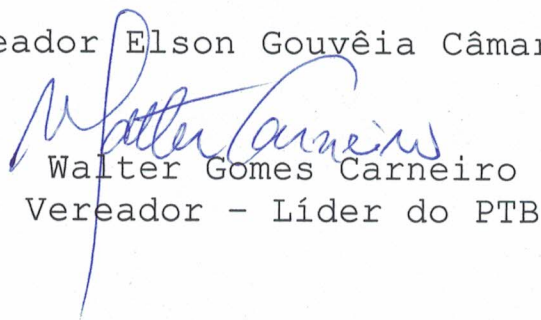 eador Elson Gouvêia Câmar
Walter Carneiro
Walter Gomes Carneiro
Vereador - Líder do PTB